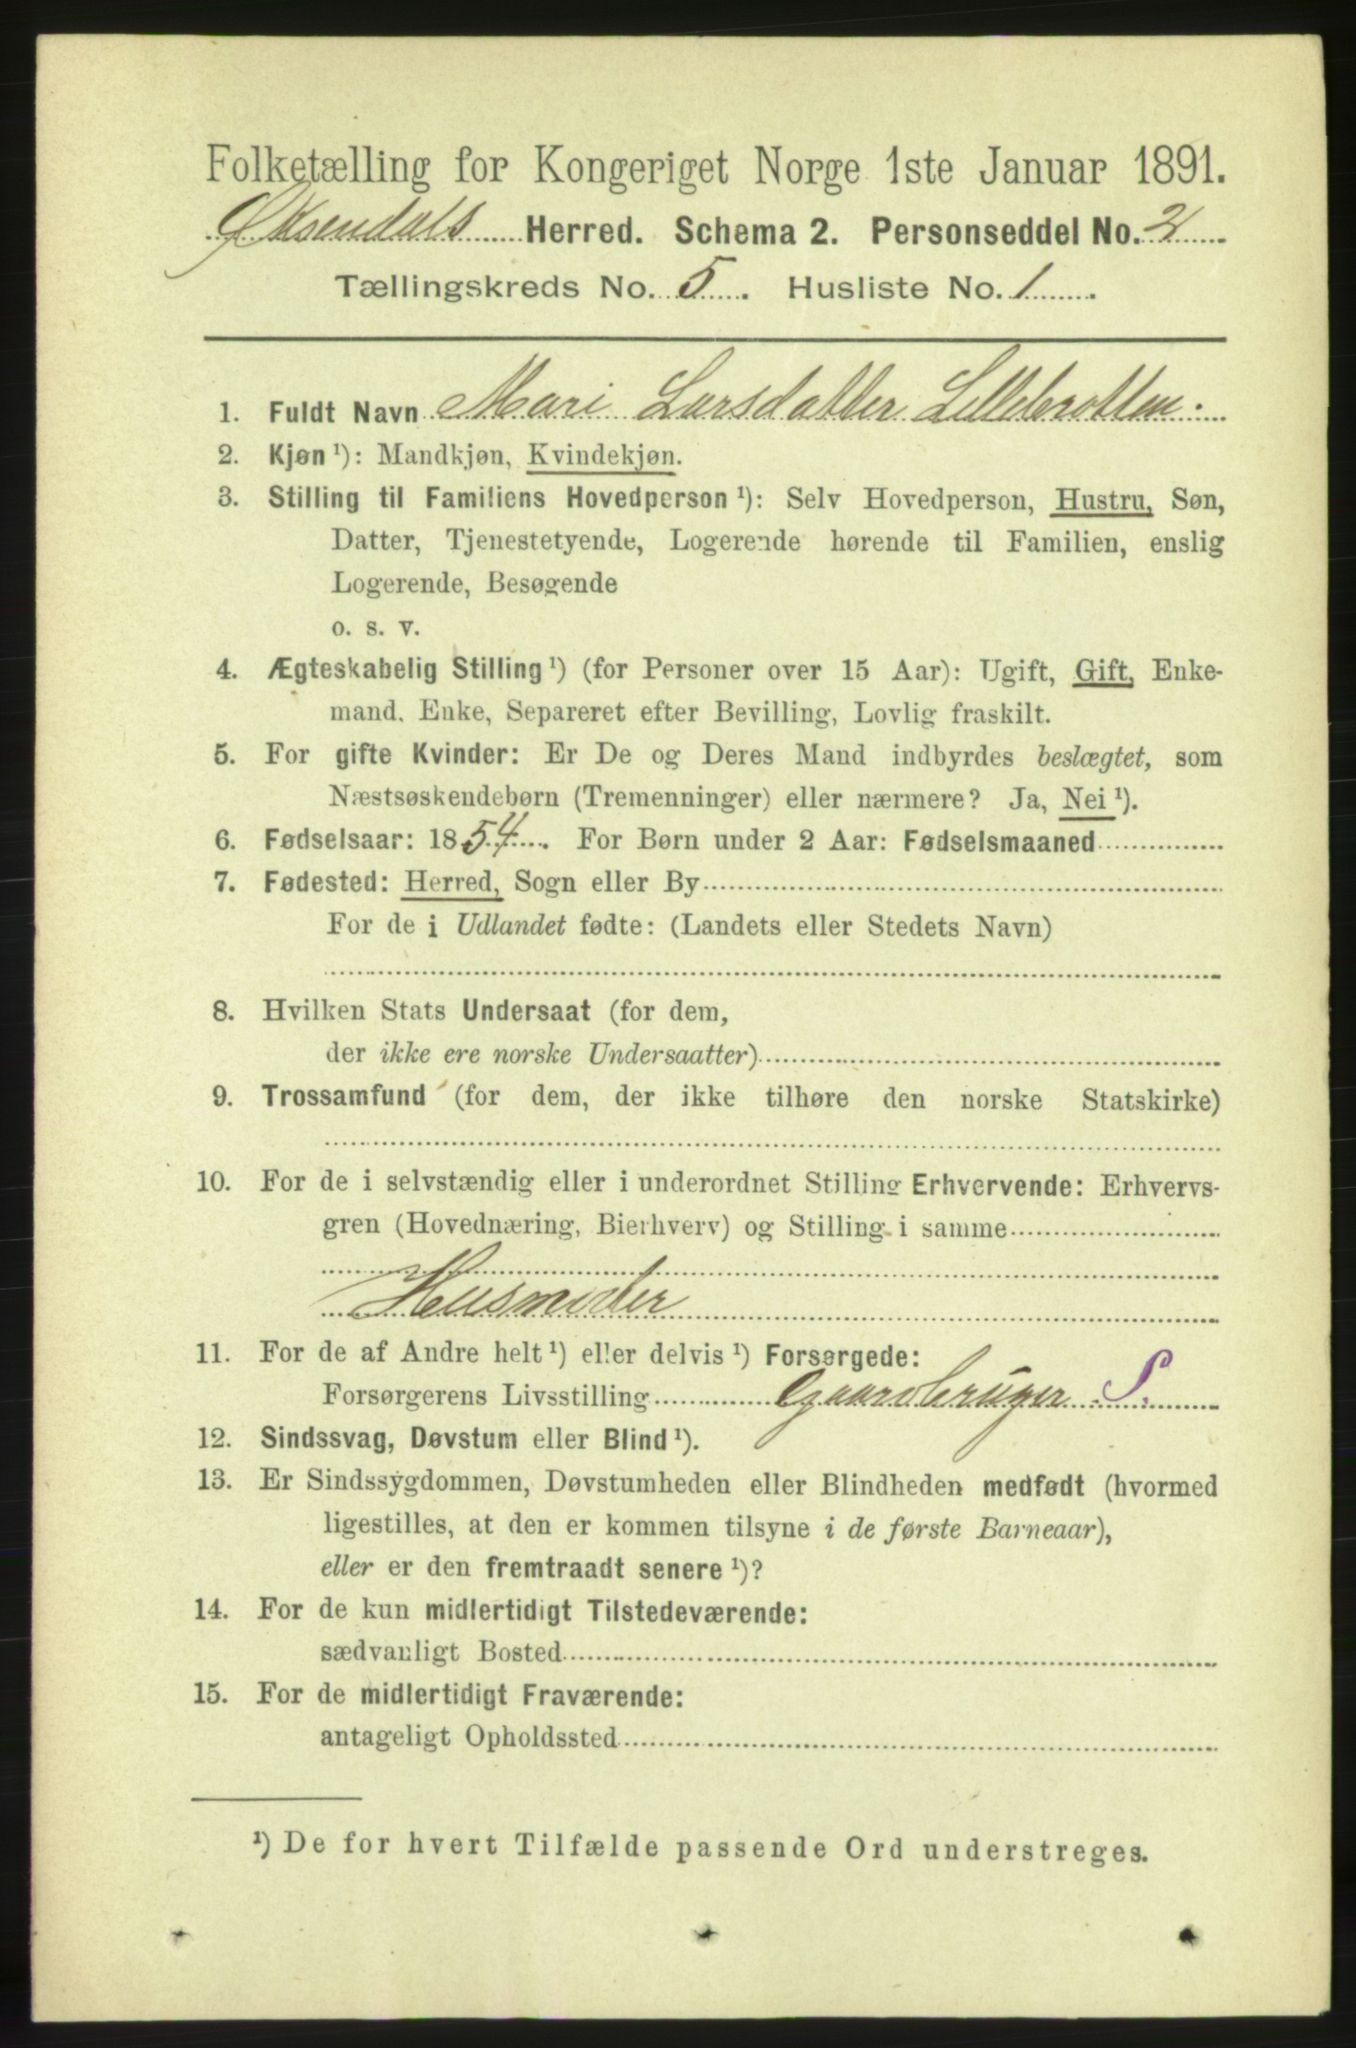 Folketælling for Kongeriget Norge 1ste Januar 1891.
Øksendals Herred. Schema 2. Personseddel No. 2
Tællingskreds No. 5. Husliste No. 1.
1. Fuldt Navn Mari Larsdatter Lillebrotten.
2. Kjøn ¹): Mandkjøn, Kvindekjøn.
3. Stilling til Familiens Hovedperson ¹): Selv Hovedperson, Hustru, Søn,
Datter, Tjenestetyende, Logerende hørende til Familien, enslig
Logerende, Besøgende
o. s. v.
4. Ægteskabelig Stilling ¹) (for Personer over 15 Aar): Ugift, Gift, Enke-
mand, Enke, Separeret efter Bevilling, Lovlig fraskilt.
5. For gifte Kvinder: Er De og Deres Mand indbyrdes beslægtet, som
Næstsøskendebørn (Tremenninger) eller nærmere? Ja, Nei ¹).
6. Fødselsaar: 1854. For Børn under 2 Aar: Fødselsmaaned
7. Fødested: Herred, Sogn eller By
For de i Udlandet fødte: (Landets eller Stedets Navn)
8. Hvilken Stats Undersaat (for dem,
der ikke ere norske Undersaatter)
9. Trossamfund (for dem, der ikke tilhøre den norske Statskirke)
10. For de i selvstændig eller i underordnet Stilling Erhvervende: Erhvervs-
gren (Hovednæring, Bierhverv) og Stilling i samme
Husmoder
11. For de af Andre helt ¹) eller delvis ¹) Forsørgede:
Forsørgerens Livsstilling Gaardbruger S.
12. Sindssvag, Døvstum eller Blind ¹).
13. Er Sindssygdommen, Døvstumheden eller Blindheden medfødt (hvormed
ligestilles, at den er kommen tilsyne i de første Barneaar),
eller er den fremtraadt senere ¹)?
14. For de kun midlertidigt Tilstedeværende:
sædvanligt Bosted
15. For de midlertidigt Fraværende:
antageligt Opholdssted
¹) De for hvert Tilfælde passende Ord understreges.